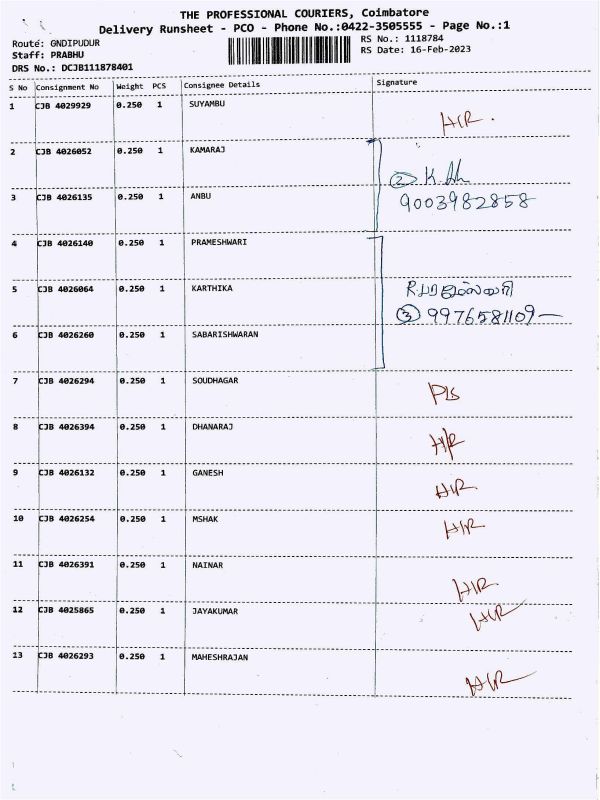 THE PROFESSIONAL COURIERS, Coimbatore
Delivery Runsheet - PCO - Phone No.:0422-3505555 - Page No.:1
Route: GNDIPUDUR
RS No.: 1118784
Staff: PRABHU
RS Date: 16-Feb-2023
DRS No.: DCJB111878401
S No Consignment No Weight PCS Consignee Details Signature
1 CJB 4029929 0.250 1 SUYAMBU H/R.
2 CJB 4026052 0.250 1 KAMARAJ
② K.
3 CJB 4026135 0.250 1 ANBU 9003982858
4 CJB 4026140 0.250 1 PRAMESHWARI
5 CJB 4026064 0.250 1 KARTHIKA
③ 9976581109
6 CJB 4026260 0.250 1 SABARISHWARAN
7 CJB 4026294 0.250 1 SOUDHAGAR
8 CJB 4026394 0.250 1 DHANARAJ H/R
9 CJB 4026132 0.250 1 GANESH H/R
10 CJB 4026254 0.250 1 MSHAK H/R
11 CJB 4026391 0.250 1 NAINAR H/R
12 CJB 4025865 0.250 1 JAYAKUMAR H/R
13 CJB 4026293 0.250 1 MAHESHRAJAN H/R